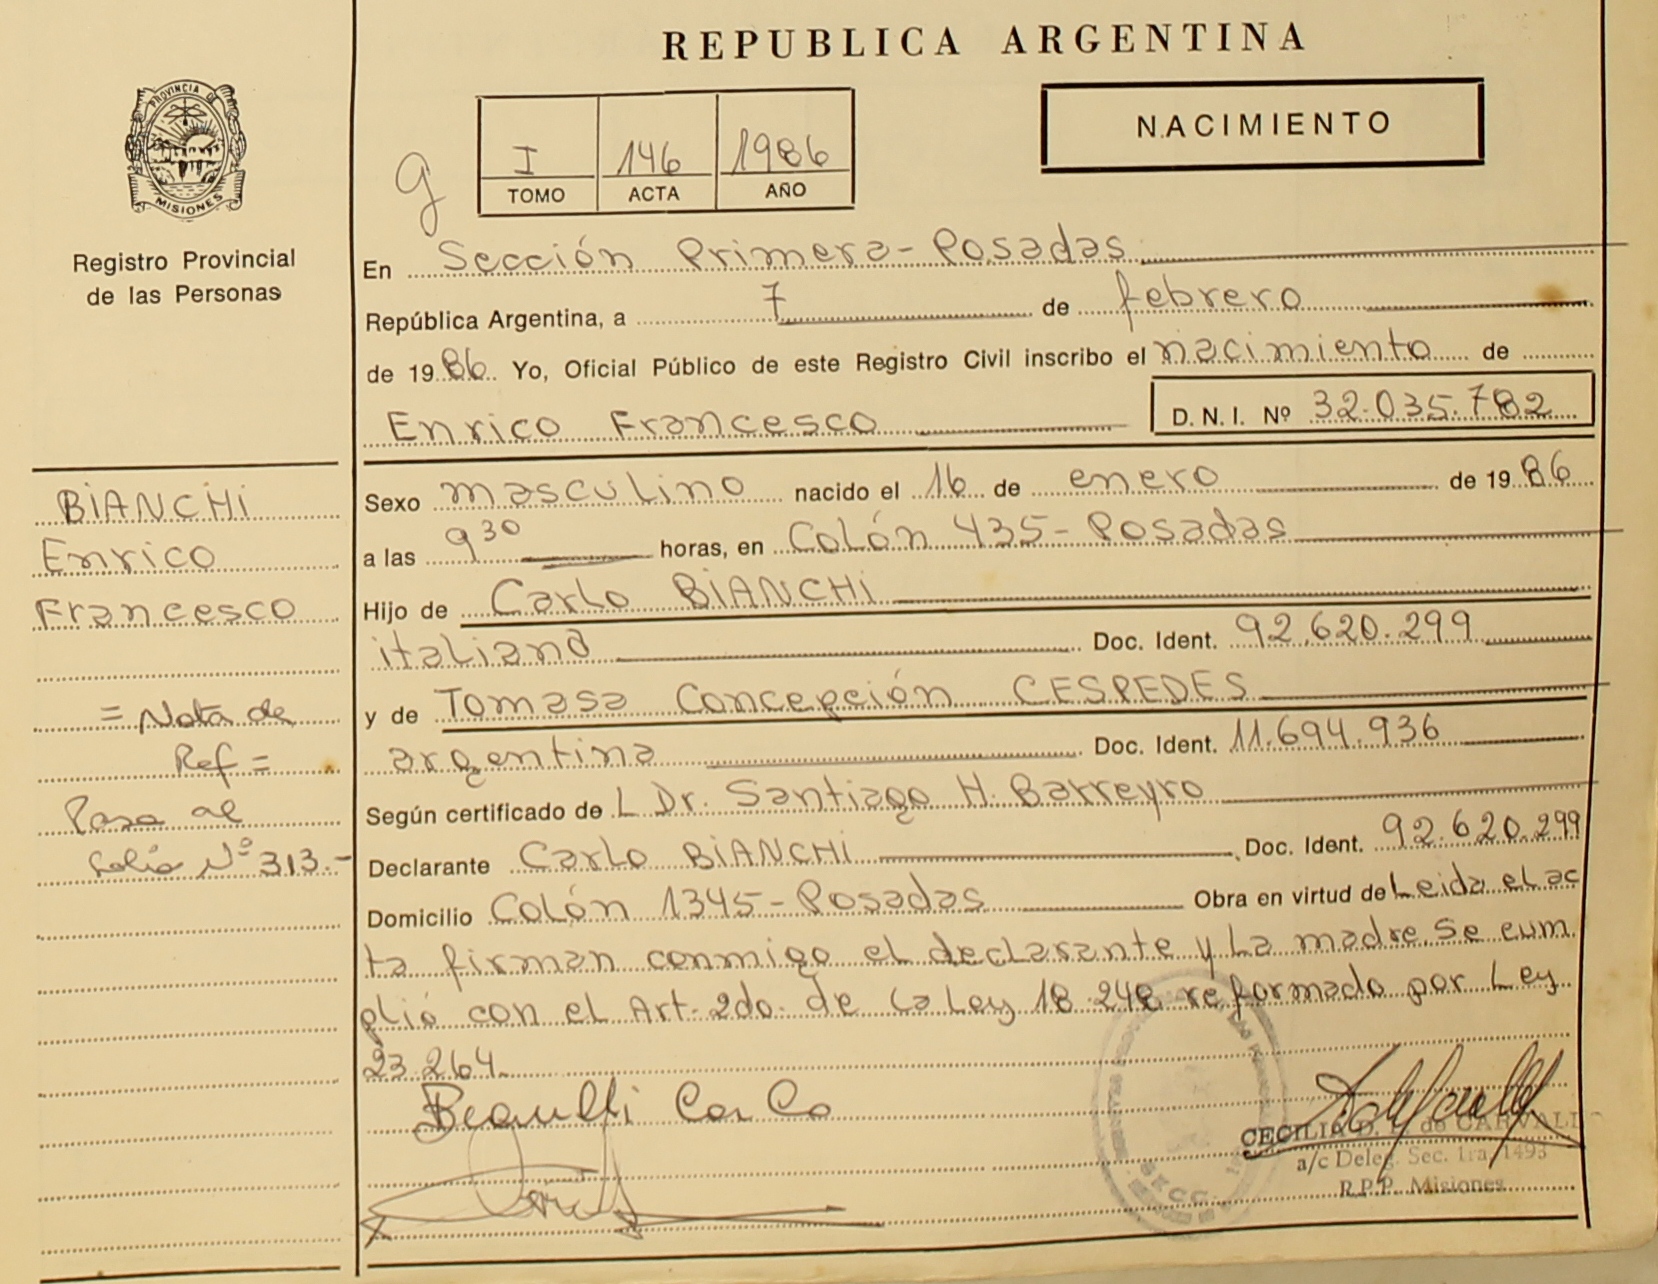 REPUBLICA ARGENTINA
PROVINCIA DE
MISIONES
Registro Provincial
de las Personas
g
I 146 1986
TOMO ACTA AÑO
NACIMIENTO
En Sección Primera-Posadas
República Argentina, a 7 de febrero
de 1986. Yo, Oficial Público de este Registro Civil inscribo el nacimiento de
Enrico Francesco D. N. I. Nº 32.035.782
BIANCHI
Enrico
Francesco
= Nota de
Ref =
Pasa al
folio Nº 313.-
Sexo masculino nacido el 16 de enero de 1986
a las 9 30 horas, en Colón 435-Posadas
Hijo de Carlo BIANCHI
italiano Doc. Ident. 92.620.299
y de Tomasa Concepción CESPEDES
argentina Doc. Ident. 11.694.936
Según certificado de L Dr. Santiago H. Barreyro
Declarante Carlo BIANCHI Doc. Ident. 92.620.299
Domicilio Colón 1345-Posadas Obra en virtud de Leida el ac
ta firman conmigo el declarante y la madre. Se cum
plió con el Art. 2do. de la Ley 18.248 reformado por Ley
23.264.
CECILIA D. de CARVALL
a/c Deleg. Sec. 1ra. 1493
R.P.P. Misiones